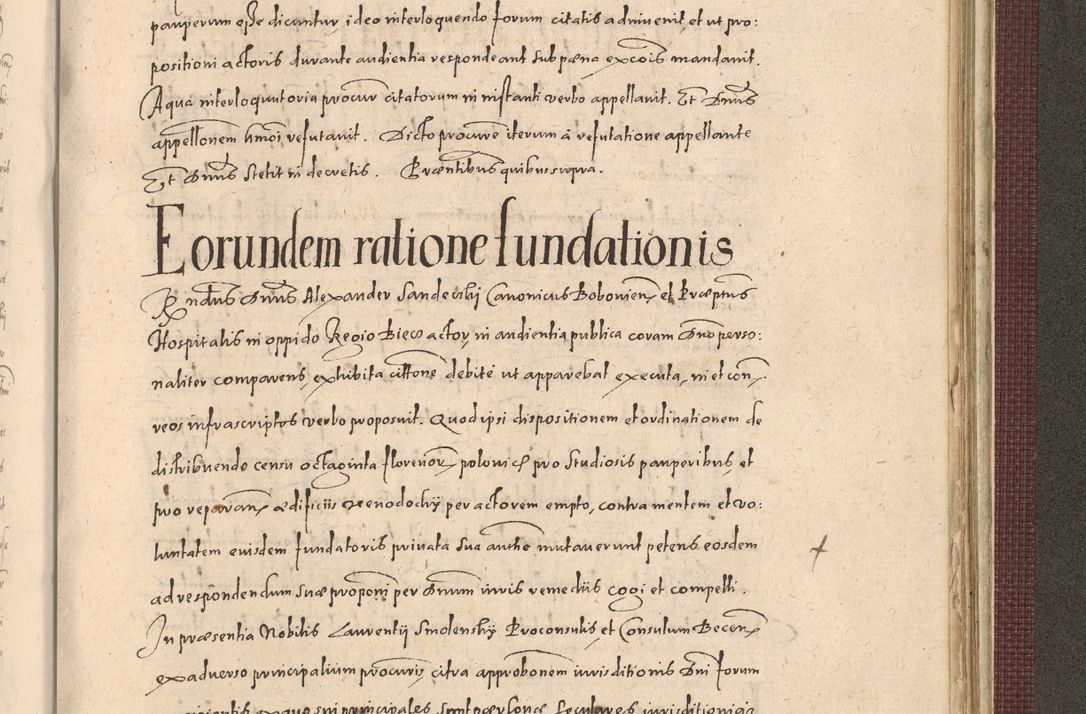 pauperum esse dicuntur, ideo interloquendo forum citatis adinvenit, et ut pro:
positioni actoris durante audientia respondeant sub pæna excois mandavit.
A qua interloquutoria procur citatorum in instanti verbo appellavit. Et Dnus
appellonem hmoi refutavit. Dicto procure iterum à refutatione appellante
Et Dnus stetit in decretis. Præntibus quibus supra.
Eorundem ratione fundationis
Rndus Dnus Alexander Sandecskj Canonicus Bobovien, et Præptus
Hospitalis in oppido Regio Biecz actor, in audientia publica coram Dno perso:
naliter comparens, exhibita cittone debite ut apparebat executa, in et con,
reos infrascriptos verbo proposuit. Quod ipsi dispositionem et ordinationem de
distribuendo censu octaginta florenor, polonic pro studiosis pauperibus, et
pro reparan, ædificiis xenodochÿ per actorem empto, contra mentem et vo:
luntatem eiusdem fundatoris privata sua authe mutaverunt petens eosdem
ad respondendum suæ proponi per Dnum iuris remedÿs cogi et compelli.
In præsentia Nobilis Laurentÿ Smolenskj Proconsulis et Consulum Becen,
ex adverso principalium procuris, citra approbonem iurisditionis Dni forum
principales sunt personæ seculares iurisditionis